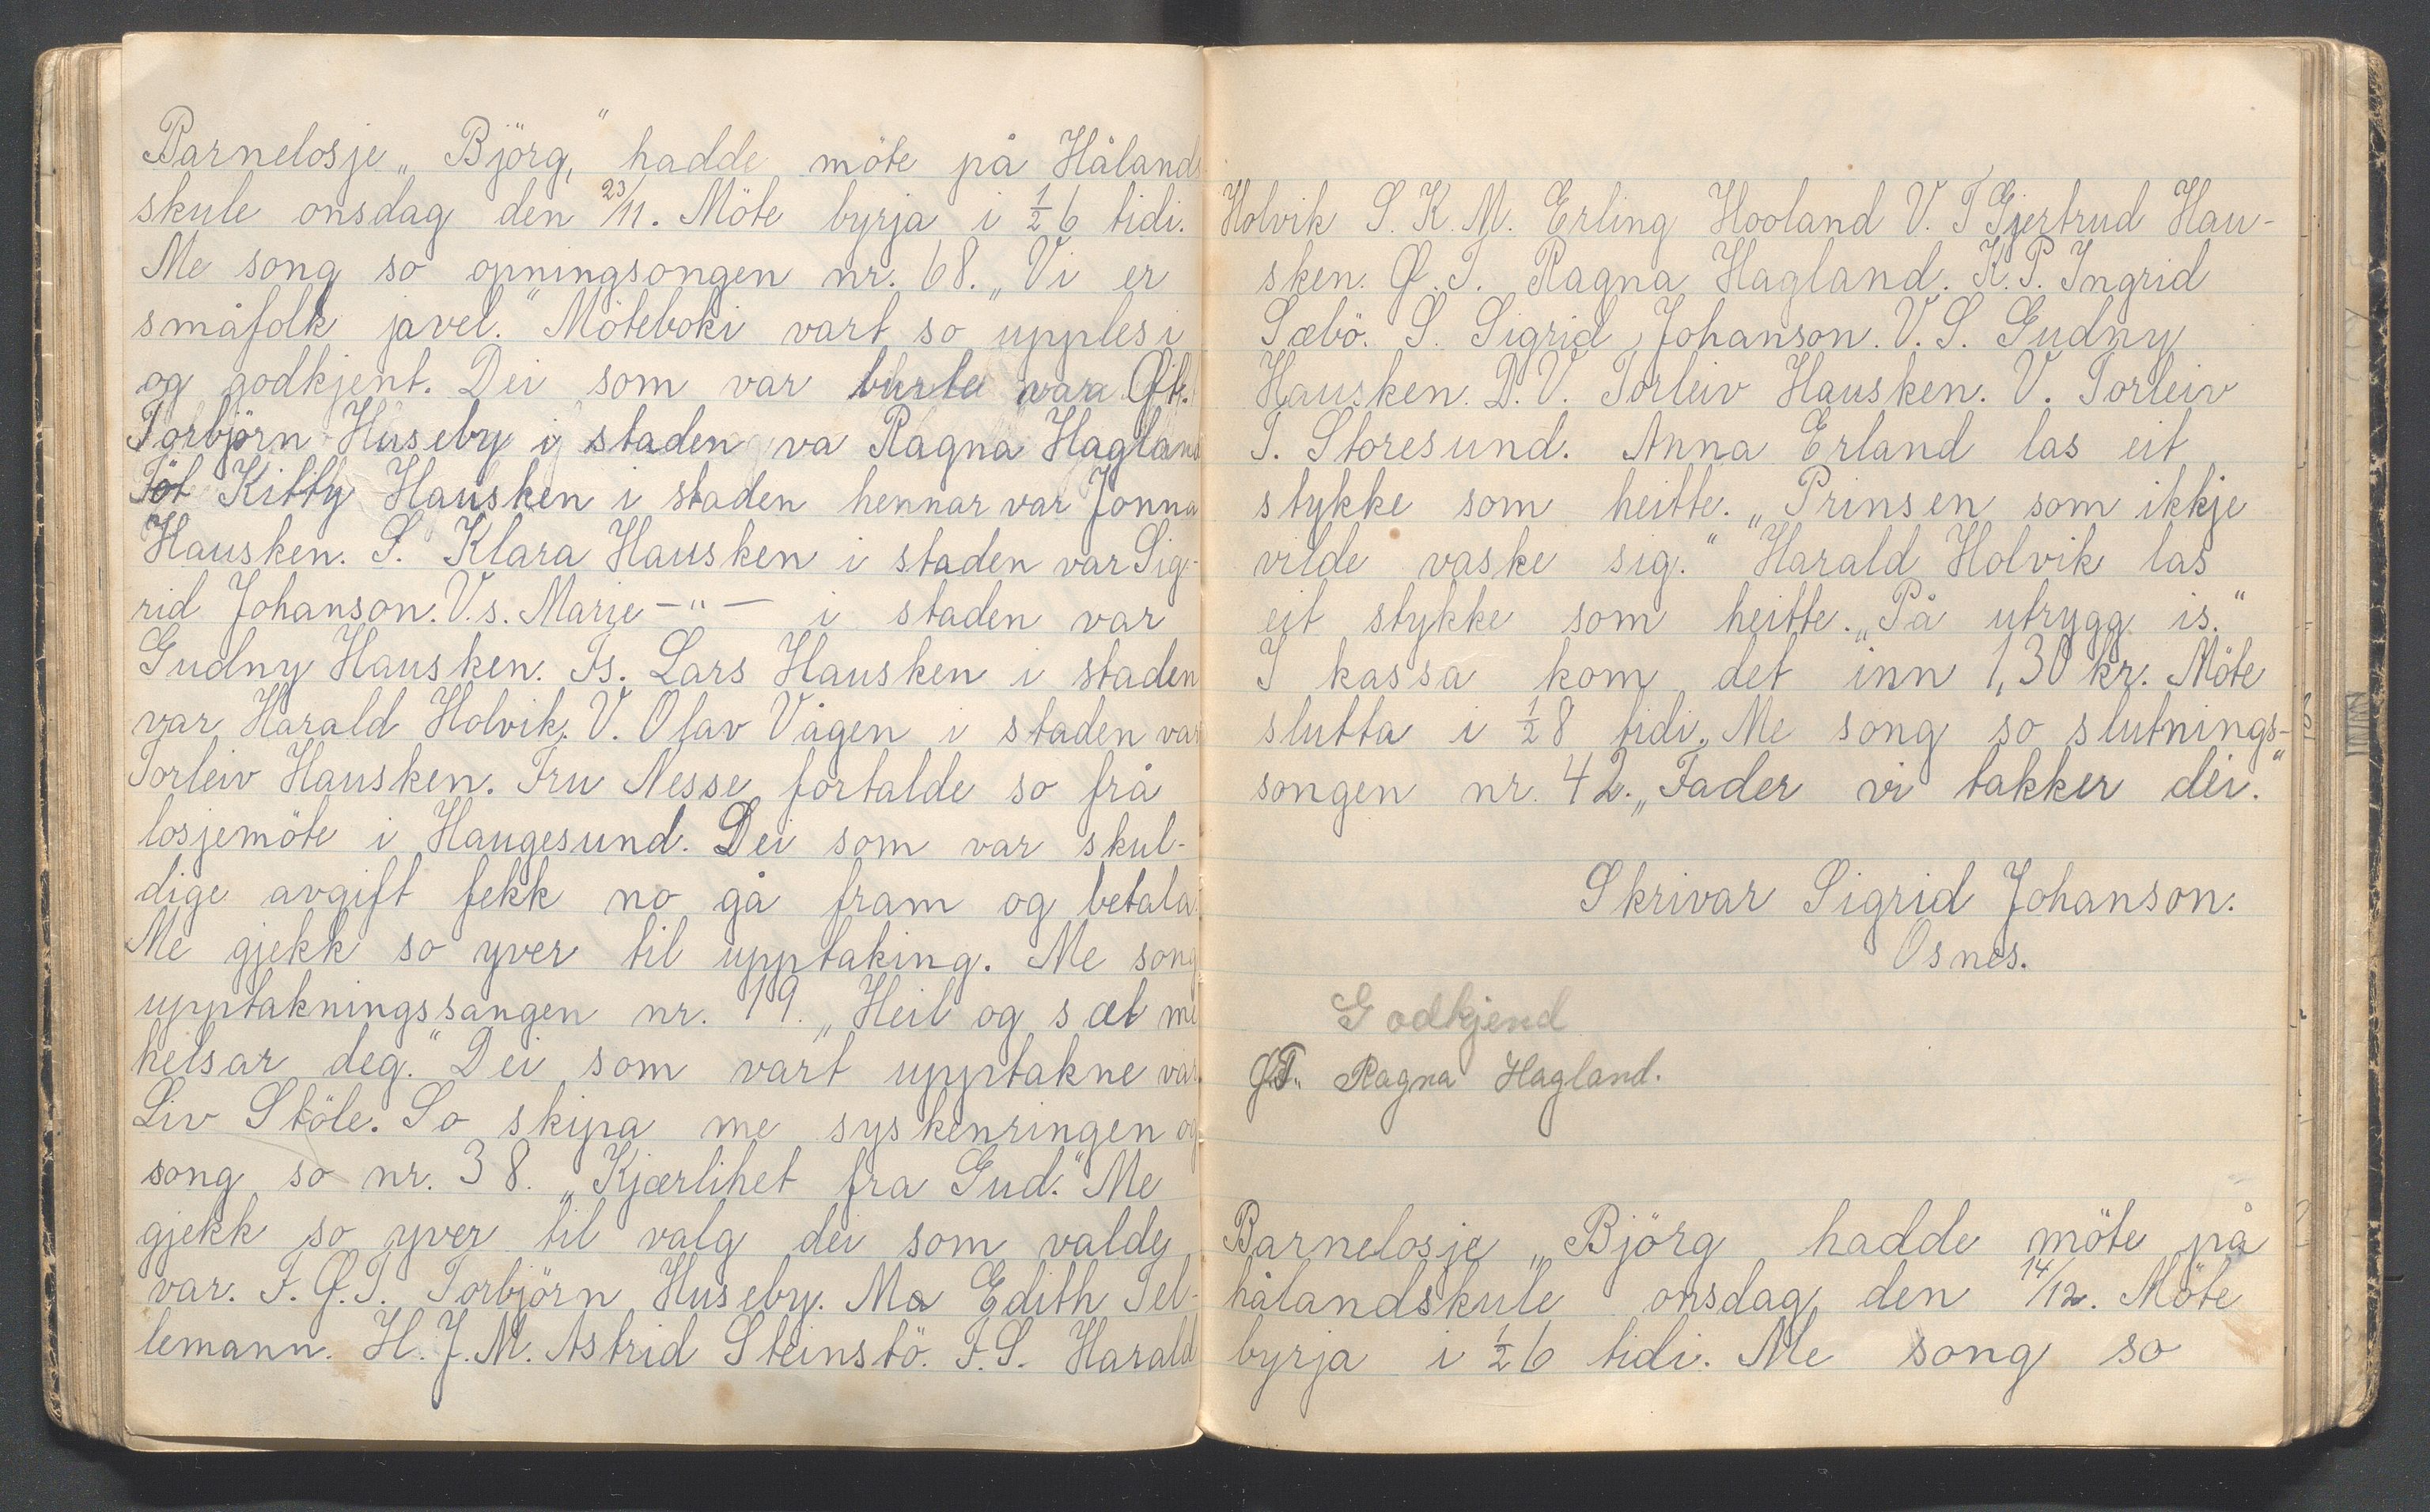 Barnelosje „Björg," hadde möte på Hålands
skule onsdag den 23/11. Möte byrja i ½ 6 tidi.
Me song so opningsongen nr. 68. „Vi er
småfolk javel." Möteboki vart so upplesi
og godkjent. Dei som var burte var Ǿt.
Torbjörn Huseby i staden va Ragna Hagland
Töt Kitty Hausken i staden hennar var Jonna
Hausken. S. Klara Hausken i staden var Sig-
rid Johanson. V.s. Marie -"- i staden var
Gudny Hausken. Fs. Lars Hausken i staden
var Harald Holvik. V. Olav Vågen i staden var
Torleiv Hausken. Fru Nesse fortalde so frå
losjemöte i Haugesund. Dei som var skul-
dige avgift fekk no gå fram og betala.
Me gjekk so yver til upptaking. Me song
upptakningssangen nr. 19. „Heil og sæl me
helsar deg." Dei som vart upptakne var
Liv Stöle. So skipa me syskenringen og
song so nr. 38. „Kjærlihet fra Gud." Me
gjekk so yver til valg dei som valde
var. F.Ǿ.T. Torbjörn Huseby. Ma Edith Tel-
lemann. H.J.M. Astrid Steinstö. F.S. Harald
Holvik S.K.M. Erling Hooland V.T Gjertrud Hau-
sken. Ǿ.T. Ragna Hagland. K.P. Ingrid
Sæbö. S. Sigrid Johanson. V.S. Gudny
Hausken. D.V. Torleiv Hausken. V. Torleiv
T. Storesund. Anna Erland las eit
stykke som heitte. „Prinsen som ikkje
vilde vaske sig." Harald Holvik las
eit stykke som heitte. „På utrygg is."
I kassa kom det inn 1,30 kr. Möte
slutta i ½ 8 tidi. Me song so slutnings-
songen nr. 42. „Fader vi takker dei."
Skrivar Sigrid Johanson.
Osnes.
Godkjend
ǾT. Ragna Hagland.
Barnelosje „Björg hadde möte på
hålandskule onsdag den 14/12. Möte
byrja i ½ 6 tidi. Me song so